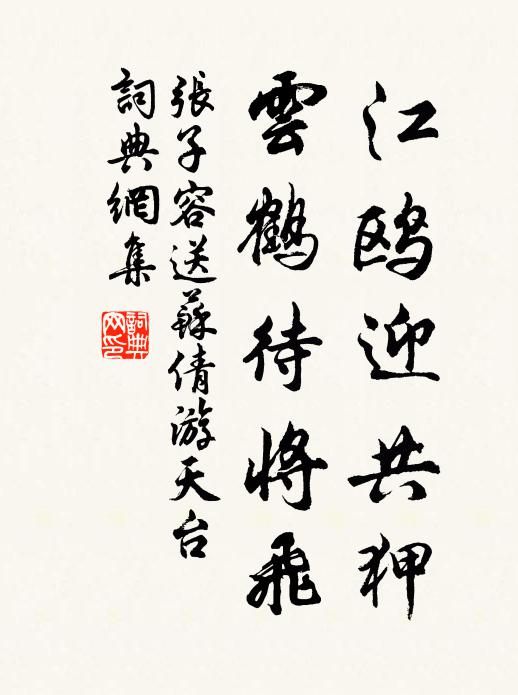 江鸥迎共狎
雲鶴待將飛
張子容送蘇倩游天台
詞典網集
詞典网印